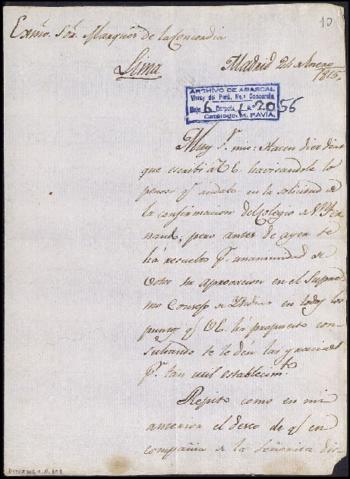 10
Exmo. Sor. Marques de la Concordia
Lima
Madrid 24 de Enero
1815,
ARCHIVO DE ABASCAL
Virrey del Perú, Mar. Concordia
Legajo 6 Carpeta 1 - 20 56
Catálogo: M. PAVIA.
Muy Sr. mio: Hacen diez dias
que escribí á VE. haciendole lo
penoso qe. andaba en la solicitud de
la confirmacion del Colegio de Sn. Fer
nando, pero antes de ayer se
há resuelto pr. unanimidad de
votos su aprovacion en el Supre
mo Consejo de Indias en todos los
puntos qe. VE. ha propuesto con
sultando se le dén las gracias
pr. tan util establecimto.
Repito como en mi
anterior el deseo de qe. en
compañia de la Señorita dis